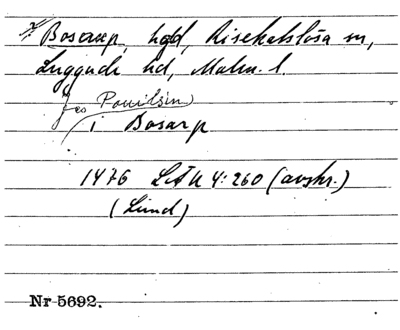 * Bosarp, hgd, Risekatslösa sn,
Luggude hd, Malm. l.
Jes Pouilsin
i Bosarp
1476 LÄU 4:260 (avskr.)
(Lund)
Nr 5692.